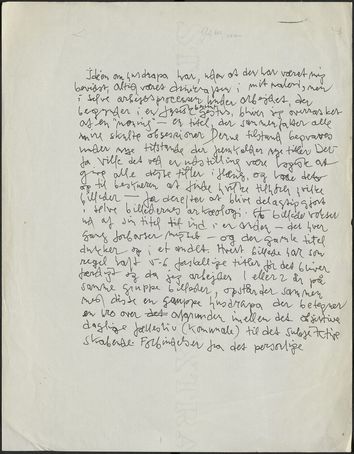 Idéen om husdrapa har, uden at det har været mig
bevidst, altid været dominerende i mit maleri, men
i selve arbejdsprocessen. Under arbejdet, der
begynder i en fysisk gestus, bliver jeg overrasket
af en "mening" – en titel der sammenfatter alle
mine skjulte obsessioner. Denne tilstand bevares
under nye tilstande der fremkalder nye titler. Der-
for ville det ved en udstilling være logisk at
give alle disse titler i flæng, og lade det
op til beskueren at finde hvilke tilhører hvilke
billeder – for derefter at blive delagtiggjort
i selve billedernes arkæologi. Et billede vokser
ud af sin titel til ind i en anden – det hver
gang forbavser mig – og den gamle titel
dukker op i et andet. Hvert billede har som
regel haft 5-6 forskellige titler før det bliver
færdigt og da jeg arbejder 1 eller 2 år på
samme gruppe billeder, opstår der sammen
med disse en gruppe husdrapa der betegner
en bro over afgrunden imellem det objektive
daglige fælles liv (kommunale) til det subjektive
skabende. Forbindelsen fra det personlige